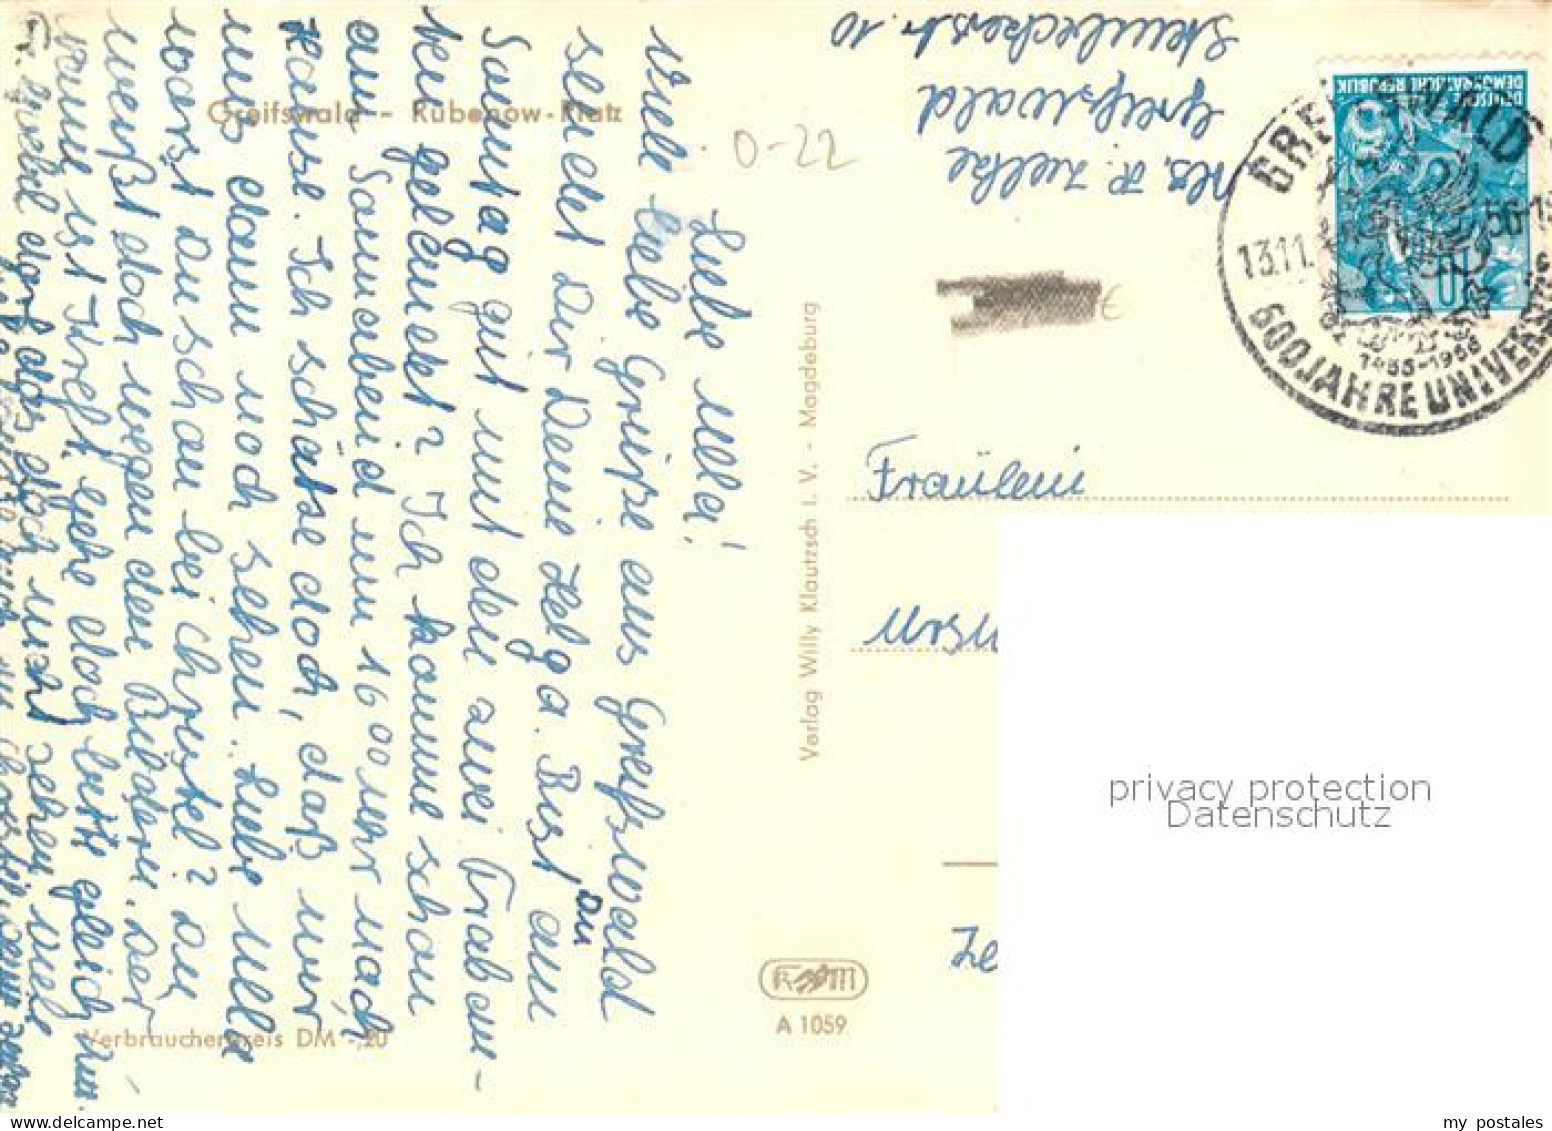 Greifswald – Rubenow-Platz
0-22
Liebe Ulla!
Viele liebe Grüße aus Greifswald
sendet Dir Deine Helga. Bist Du am
Sonntag gut mit den zwei Traban-
ten gelandet? Ich komme schon
am Sonnabend um 1600 Uhr nach
Hause. Ich schätze doch, daß wir
uns dann noch sehen. Liebe Ulla
warst Du schon bei Christel? Du
weißt doch wegen der Bilder. Der
Mann ist Kreft, gehe doch bitte gleich hin.
doch nicht sehr viele
Verbraucherpreis DM -,20
Verlag Willy Klautzsch i. V. - Magdeburg
A 1059
Abs. H. Zielke
Greifswald
10
DEUTSCHE
DEMOKRATISCHE REPUBLIK
10
GREIFSWALD
13.11.56-1
1456-1956
600 JAHRE UNIVERS
€
Fräulein
Ursu
He
privacy protection
Datenschutz
my postales